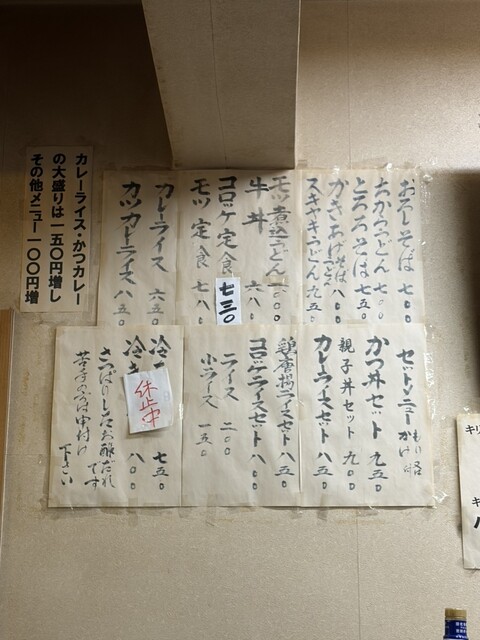 おろしそば 七〇〇
とろろそば 七五〇
かきあげそば うどん 八〇〇
スキヤキうどん 九五〇
モツ煮込うどん 一〇〇〇
牛丼 六八〇
コロッケ定食 七三〇
モツ定食 七八〇
カレーライス 六五〇
カツカレーライス 八五〇
カレーライス・かつカレー
の大盛りは一五〇円増し
その他メニュー一〇〇円増
セットメニュー もり 又 かけ 付
かつ丼セット 九五〇
親子丼セット 九〇〇
カレーライスセット 八五〇
鶏唐揚ライスセット 八五〇
コロッケライスセット 八〇〇
ライス 二〇〇
小ライス 一五〇
冷 七五〇
冷 八〇〇
休止中
さっぱりしたお酢だれ
です
苦手の方は申付け
下さい
キリ